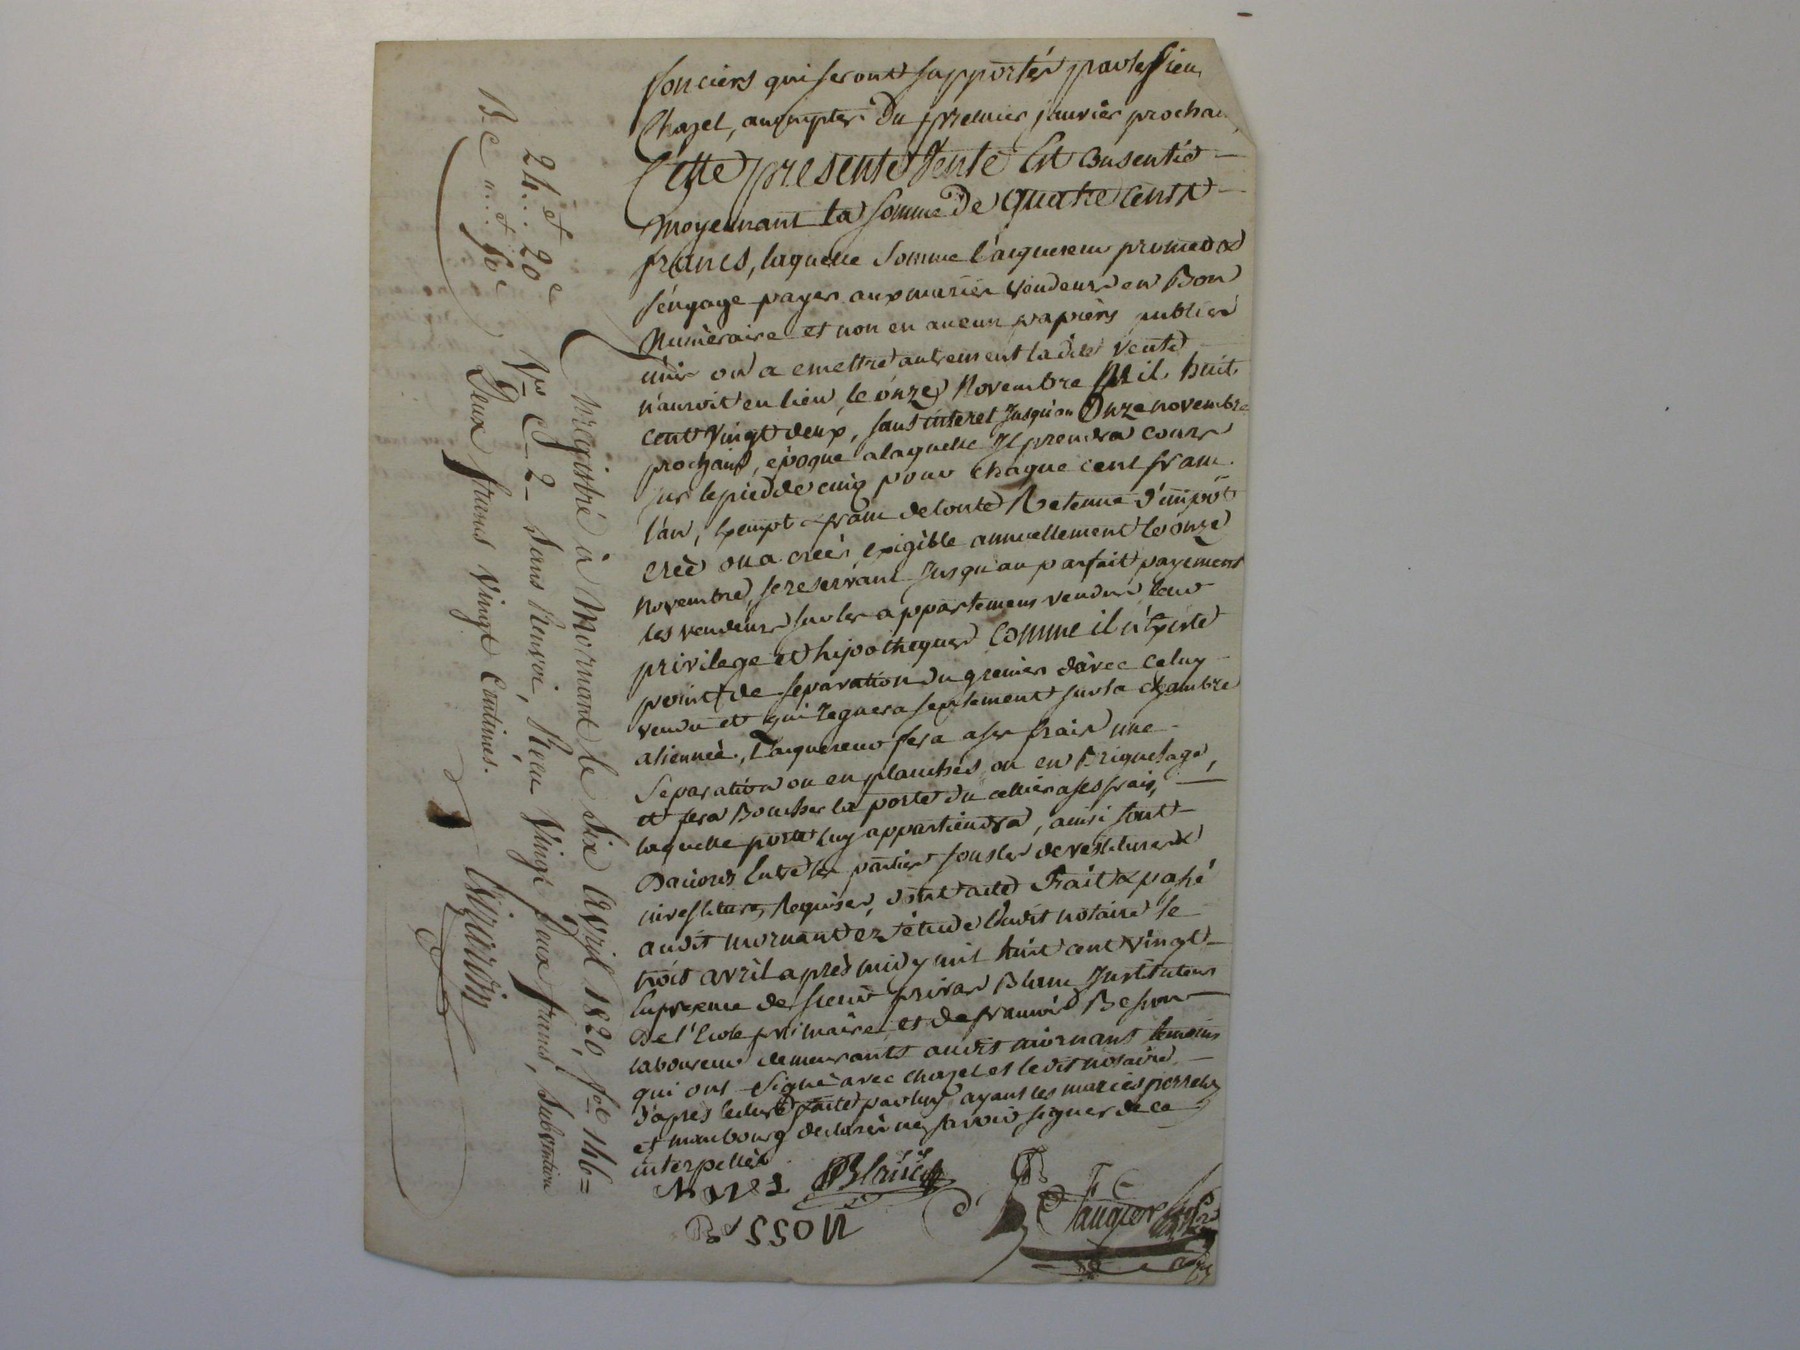 fonciers qui seront supportés par le Sieur
Chazel, acompter du premier janvier prochain,
Cette presente Vente Est consentie
moyennant la somme De quatre cents
francs, laquelle somme l'aquereur promet &
s'engage payer aux mariés vendeurs en Bon
Numèraire et non en aucun papiers publics
émis ou a emettre autrement ladite vente
n'auroit eu lieu, le onze Novembre Mil huit
cent vingt deux, sans interet jusqu'au Onze novembre
prochain, epoque alaquelle Il prendra cours
sur le pied de cinq pour chaque cent franc
l'an, Exempt & franc de toute Retenue d'impôt
creè ou a creér, exigible annuellement le onze
Novembre, se reservant jusqu'au parfait payement
les vendeurs sur les appartemens vendus leur
privilege et hypotheques Comme il n'existe
point de separation du grenier d'avec celuy
vendu et qui regnera seulement sur la chambre
aliennée, l'aquereur fera a ses frais une
Separation ou en planches ou en Briquetage,
et fera Boucher la porte du cellier a ses frais,
laquelle porte luy appartiendra, ainsi sont
D'accord Entre les parties sous les devestitures &
investitures Requises, dont acte Fait & passé
audit mornant ez l'étude dudit notaire le
trois avril après midy mil huit cent vingt
En presence de sieur privat Blanc Instituteur
De l'Ecole primaire et de francois Besson
laboureur demeurants audit mornant temoins
qui ont signé avec chazel et ledit notaire
d'après lecture faite par luy ayant les mariés
et maubourg declaré ne savoir signer de ce
interpellés
Blanc
BESSON
Enregistré à Mornant le Six Avril 1820, fol 146
Vo C 2 sans Renvoi, Reçu Vingt Deux francs, Subvention
Deux francs Vingt Centimes.
24 et 20